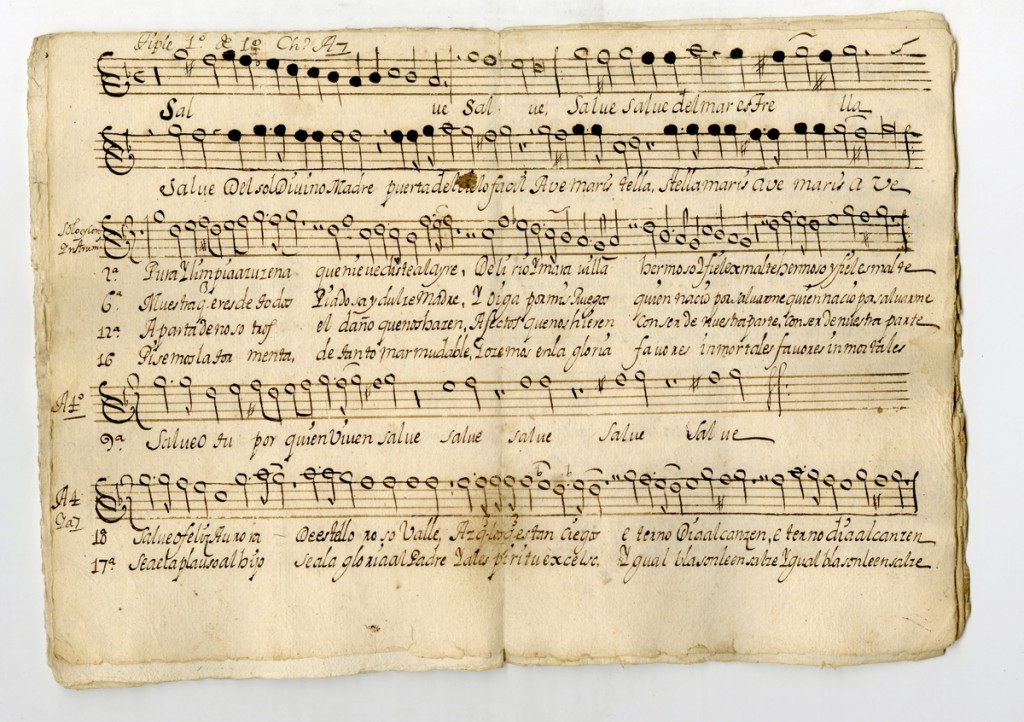 Tiple 1º de 1º Chº A7
Sal ve Sal ve, Salve salve del mar estre lla
Salve Del sol Divino Madre puerta del cielo facil Ave maris tella, stella maris ave maris a Ve
Solo y con Instrum
2ª Pura Y limpia azuzena que nieve diste al ayre, De li rio Y mara villa hermoso Y fiel esmalte hermoso y fiel esmalte
6ª Muestra q. eres de todos Piadosa y dulze Madre, Y diga por mis Ruegos quien nacio por salvarme quien nacio por salvarme
12ª Aparta de noso tros el daño que nos hazen, Afectos que nos hieren con ser de nuestra parte, con ser de nuestra parte
16 Pisemos la tor menta, de tanto mar mudable, Gozemos en la gloria favores inmortales favores inmortales
A 4º
9ª Salve O tu por quien Viven salve salve salve salve Sal ve
A 4
18 Salve o feliz Aurora De este llo ro so Valle, estan ciegos eterno Dia alcanzen, e terno dia alcanzen
17ª Sea el aplauso al hijo sea la gloria al Padre Y al es piri tu excelso, Y gual blason le ensalze Y gual blason le ensalze